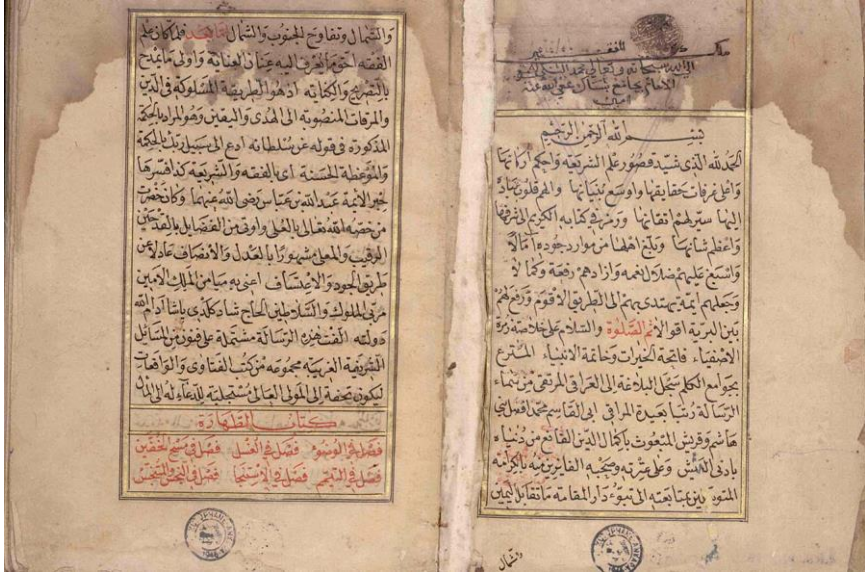 بسم الله الرحمن الرحيم
الحمد لله الذى شيد قصور علم الشريعة واحكم اركانها
واعلى غرفات حقايقها واوسع بنيانها والهم قلوب عباده
اليها ستر لهم اتقانها ورمز فى كتابه الكريم الى شرفها
واعظم شانها وبلغ اهلها من موارد جوده آمالا
واسبغ عليهم ضلال نعمه وازادهم رفعة وكمالا
وجعلهم ايمة يهتدى بهم الى الطريق الاقوم ورفع لهم
بين البرية اقوالا ثم الصلوة والسلام على خلاصة زمرة
الاصفياء فاتحة الخيرات وخاتمة الانبياء المشرع
بجوامع الكلم سبل البلاغة الى الغراقى المرتقى من سماء
الرسالة المراقى ابى القاسم محمد افضل بنى
هاشم وقريش المنعوت بكمال الدين القانع من دنياه
بادنى العيش وعلى عترته وصحبه الفايزين منه بالكرامة
المتودين بمتابعته الى تبوء دار المقامة ما تقابل اليمين
وشمال
والشمال وتفاوح الجنوب والشمال فلما كان علم
الفقه احق ما يصرف اليه عنان العناية واولى ما يمدح
بالتصريح والكناية اذ هو الطريقة المسلوكة فى الدين
والمرقات المنصوبة الى الهدى واليقين وهو المراد بالحكمة
المذكورة فى قوله عز سلطانه ادع الى سبيل ربك بالحكمة
والموعظة الحسنة اى بالفقه والشريعة كذا فسرها
حبر الايمة عبد الله بن عباس رضى الله عنهما وكان حضرت
من خصه الله تعالى بالعلى واوتى من الفضايل بالقدحين
الرقيب والمعلى مشهورا بالعدل والانصاف عادلا عن
طريق الجود والاعتساف اعنى به ميامن الملك الامين
مربى الملوك والسلاطين الحاج شاد كلدى باشا ادام الله
دولته الفت هذه الرسالة مشتملة على فنون من المسائل
الشريفة الغريبة مجموعة من كتب الفتاوى والواقعات
ليكون تحفة الى المولى العالى مستجلبة للدعاء له الى المآل
كتاب الطهارة
فصل فى الوضوء فصل فى الغسل فصل فى مسح الخفين
فصل فى التيمم فصل فى الاستنجا فصل فى النجس والمتنجس